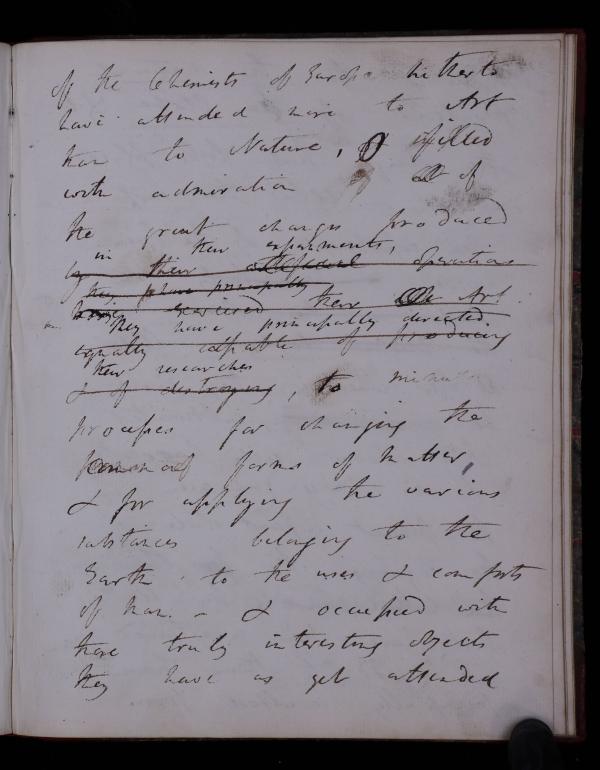 of the Chemists of Europe hitherto
have attended more to Art
than to Nature, & filled
with admiration of
the great changes produced
in their experiments,
by their operations
they have principally
have exercised their Art.
they have principally directed
equally capable of producing
their researches
& of destroying, to minute
processes for changing the
forms of matter,
& for applying the various
substances belonging to the
Earth to the uses & comforts
of man. - & occupied with
these truly interesting objects
they have as yet attended